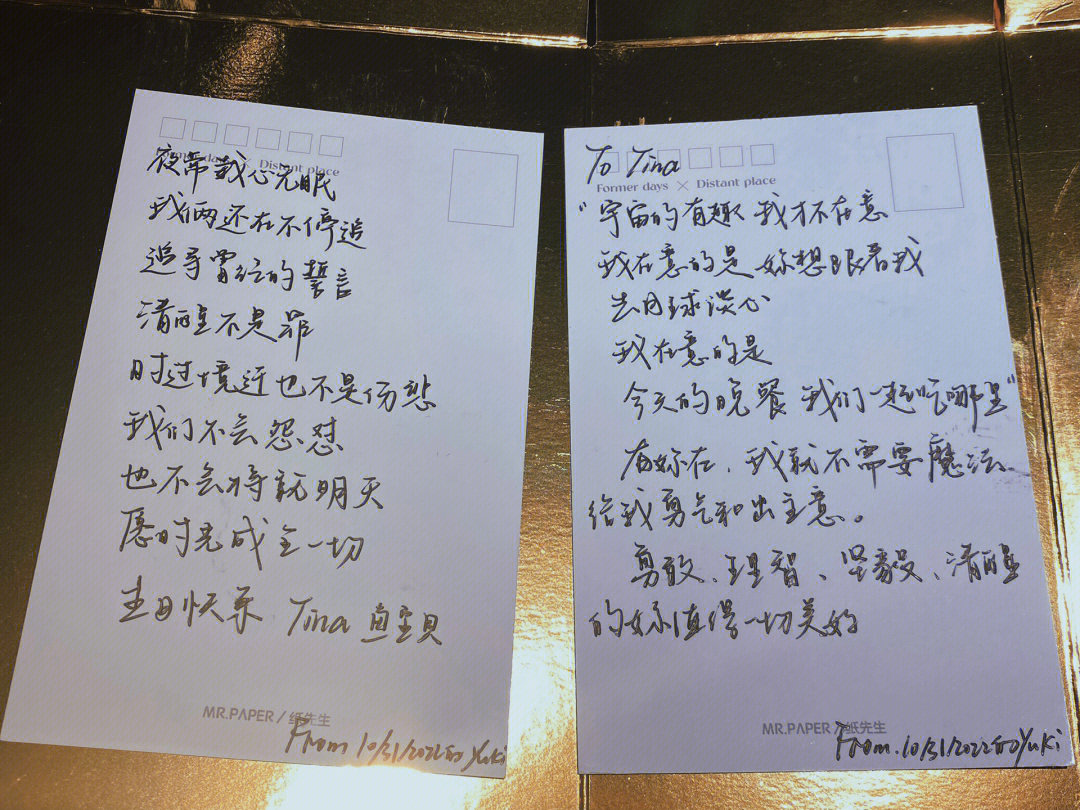 Former days Distant place
夜常戴心无眠
我们两还在不停追
追寻曾经的誓言
清醒不是罪
时过境迁也不是伤悲
我们不会怨怼
也不会将就明天
愿时光成全一切
生日快乐 Tina 鱼宝贝
MR.PAPER / 纸先生
From 10/31/2022的Yuki
To Tina
Former days × Distant place
“宇宙的有趣 我才不在意
我在意的是 妳想跟着我
去月球谈心
我在意的是
今天的晚餐 我们一起吃哪里”
有妳在、我就不需要魔法
给我勇气和出主意。
勇敢、理智、坚毅、清醒
的妳值得一切美好
MR.PAPER / 纸先生
From.10/31/2022的Yuki